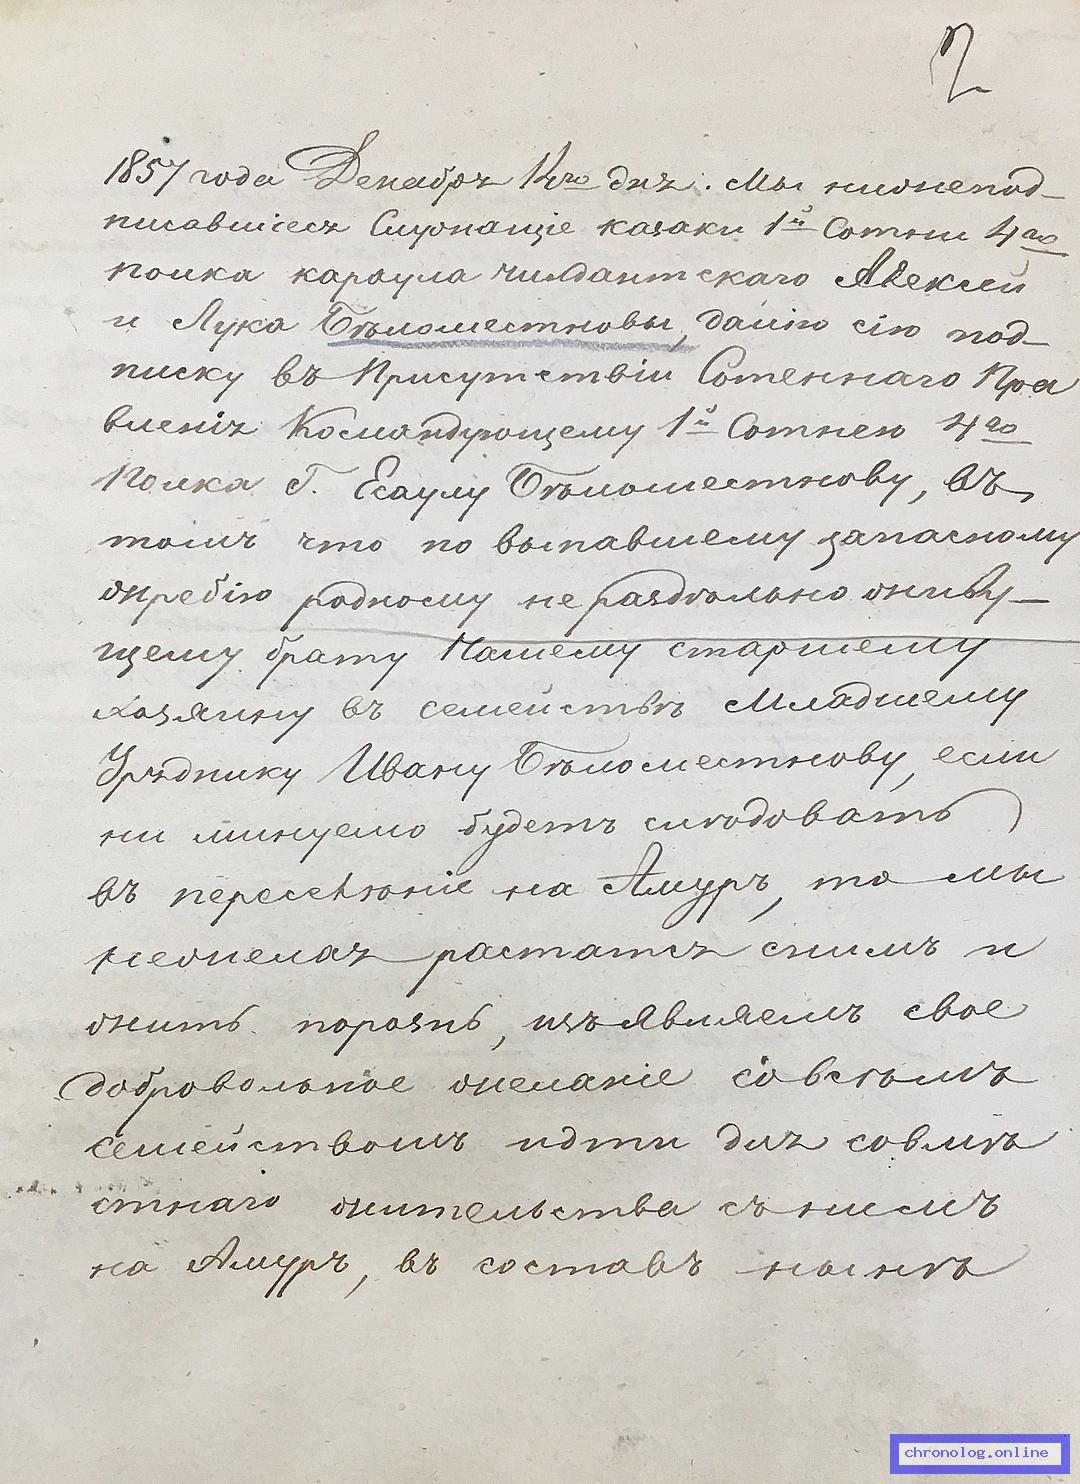 2
1857 года Декабря 12го дня. Мы нижепод-
писавшіеся Служащіе казаки 1й Сотни 4го
полка караула чиндантскаго Алексей
и Лука Бѣломестновы, даемъ сію под-
писку въ Присутствіи Сотеннаго Пра
вленія Командующему 1й Сотнею 4го
Полка Г. Есаулу Бѣломестнову, въ
томъ что по выпавшему запасному
жребію родному не раздѣльно живу-
щему брату Нашему старшему
хозяину въ семействѣ Младшему
Уряднику Ивану Бѣломестнову, если
ни минуемо будетъ слѣдовать
въ переселеніе на Амуръ, то мы
нежелая растатся снимъ и
жить порознь, изъявляемъ свое
добровольное желаніе со всѣмъ
семействомъ идти для совмѣ
стнаго жительства съ нимъ
на Амуръ, въ составъ нынѣ
chronolog.online